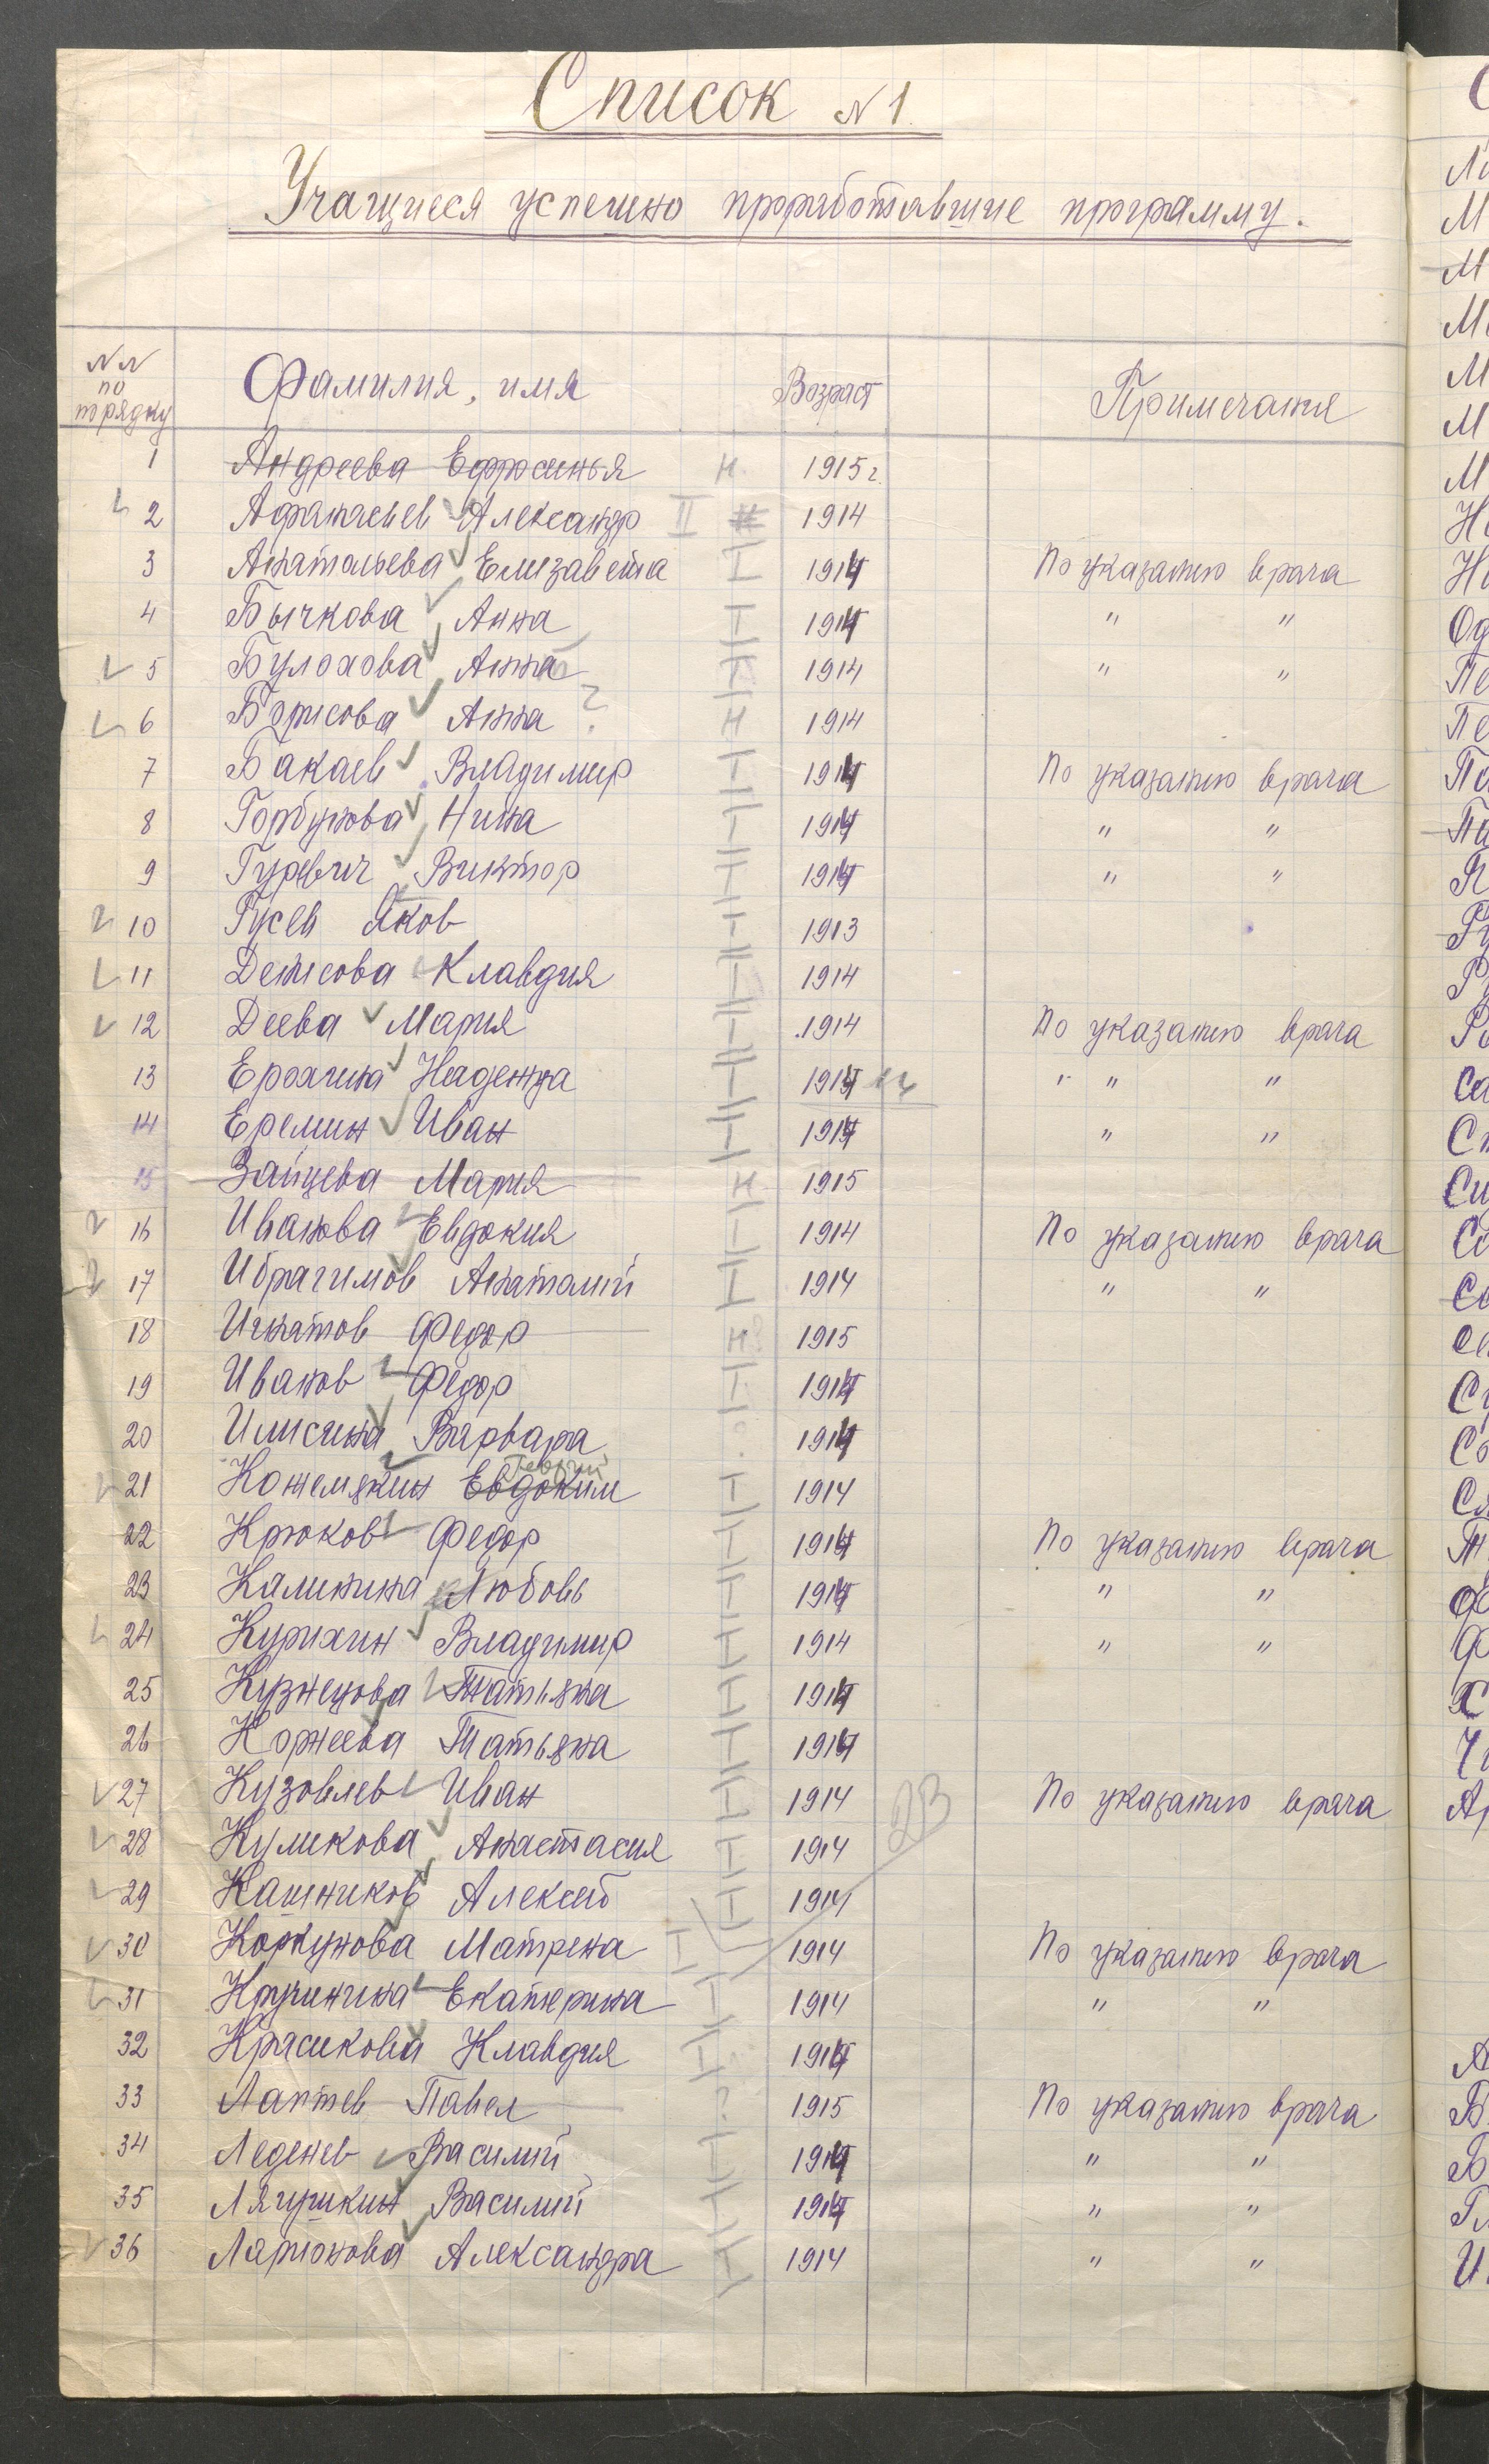 Список №1.
Учащиеся успешно проработавшие программу.
№№ по порядку Фамилия, имя Возраст Примечания
1 Андреева Ефросинья н. 1915 г.
2 Афанасьев Александр II 1914
3 Анатольева Елизавета I 1914 По указанию врача
4 Бычкова Анна I 1914 " "
5 Булохова Анна I 1914 " "
6 Борисова Анна ? н 1914
7 Бакаев Владимир I 1914 По указанию врача
8 Горбунова Нина I 1914 " "
9 Гуревич Виктор I 1914 " "
10 Гусев Яков I 1913
11 Денисова Клавдия I 1914
12 Деева Мария I 1914 По указанию врача
13 Ерохина Надежда I 1914 14 " "
14 Еремин Иван I 1914 " "
15 Зайцева Мария н 1915
16 Иванова Евдокия I 1914 По указанию врача
17 Ибрагимов Анатолий I 1914 " "
18 Игнатов Федор н? 1915
19 Иванов Федор I 1914
20 Илисина Варвара 1914
21 Кожемякин Евдоким I 1914
22 Крюков Федор I 1914 По указанию врача
23 Калинина Любовь I 1914 " "
24 Курихин Владимир I 1914 " "
25 Кузнецова Татьяна I 1914
26 Корнеева Татьяна I 1914
27 Кузовлев Иван I 1914 23 По указанию врача
28 Куликова Анастасия I 1914
29 Кашников Алексей I 1914
30 Коркунова Матрена I 1914 По указанию врача
31 Кручинина Екатерина I 1914 " "
32 Красикова Клавдия I 1914
33 Лаптев Павел ? 1915 По указанию врача
34 Леденев Василий I 1914 " "
35 Лягушкин Василий I 1914 " "
36 Ларионова Александра I 1914 " "